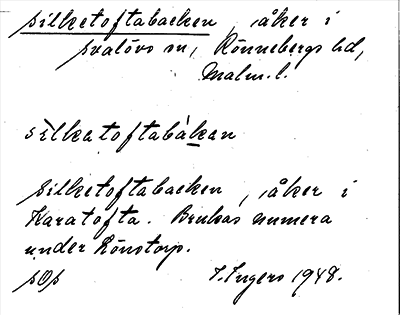 Silketoftabacken, åker i
Svalövs sn, Rönnebergs hd,
Malm. l.
sìlkatoftabàkan
Silketoftabacken, åker i
Karatofta. Brukas numera
under Rönstorp.
I. Ingers 1948.